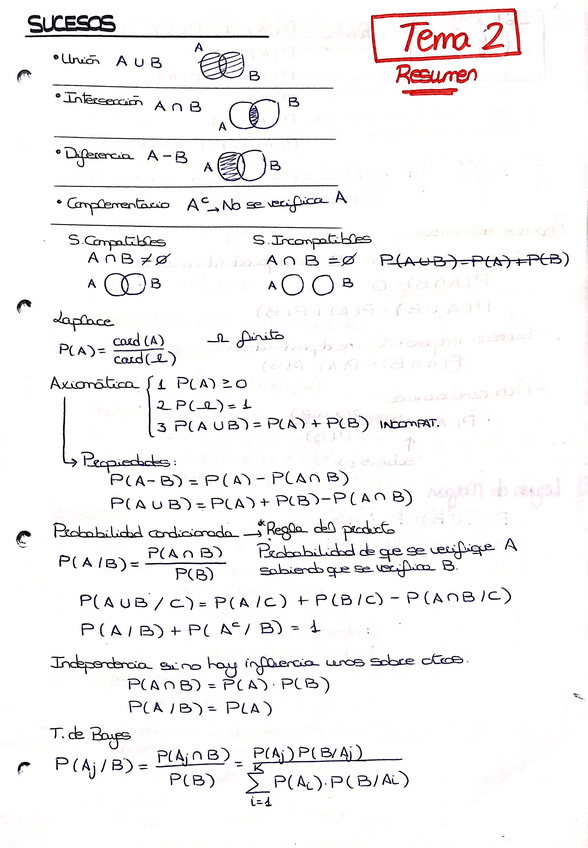 SUCESOS
Tema 2
Resumen
• Unión A ∪ B
A
B
• Intersección A ∩ B
A
B
• Diferencia A - B
A
B
• Complementario Aᶜ → No se verifica A
S. Compatibles
A ∩ B ≠ ∅
A B
S. Incompatibles
A ∩ B = ∅ P(A∪B)=P(A)+P(B)
A B
Laplace
P(A) = card(A) / card(Ω) Ω finito
Axiomática { 1 P(A) ≥ 0
2 P(Ω) = 1
3 P(A ∪ B) = P(A) + P(B) INCOMPAT.
↳ Propiedades:
P(A-B) = P(A) - P(A∩B)
P(A∪B) = P(A) + P(B) - P(A∩B)
Probabilidad condicionada → *Regla del producto
P(A/B) = P(A∩B) / P(B)
Probabilidad de que se verifique A
sabiendo que se verifica B.
P(A∪B/C) = P(A/C) + P(B/C) - P(A∩B/C)
P(A/B) + P(Aᶜ/B) = 1
Independencia si no hay influencia unos sobre otros.
P(A∩B) = P(A)·P(B)
P(A/B) = P(A)
T. de Bayes
P(Aj/B) = P(Aj∩B) / P(B) = P(Aj)P(B/Aj) / K∑i=1 P(Ai)·P(B/Ai)